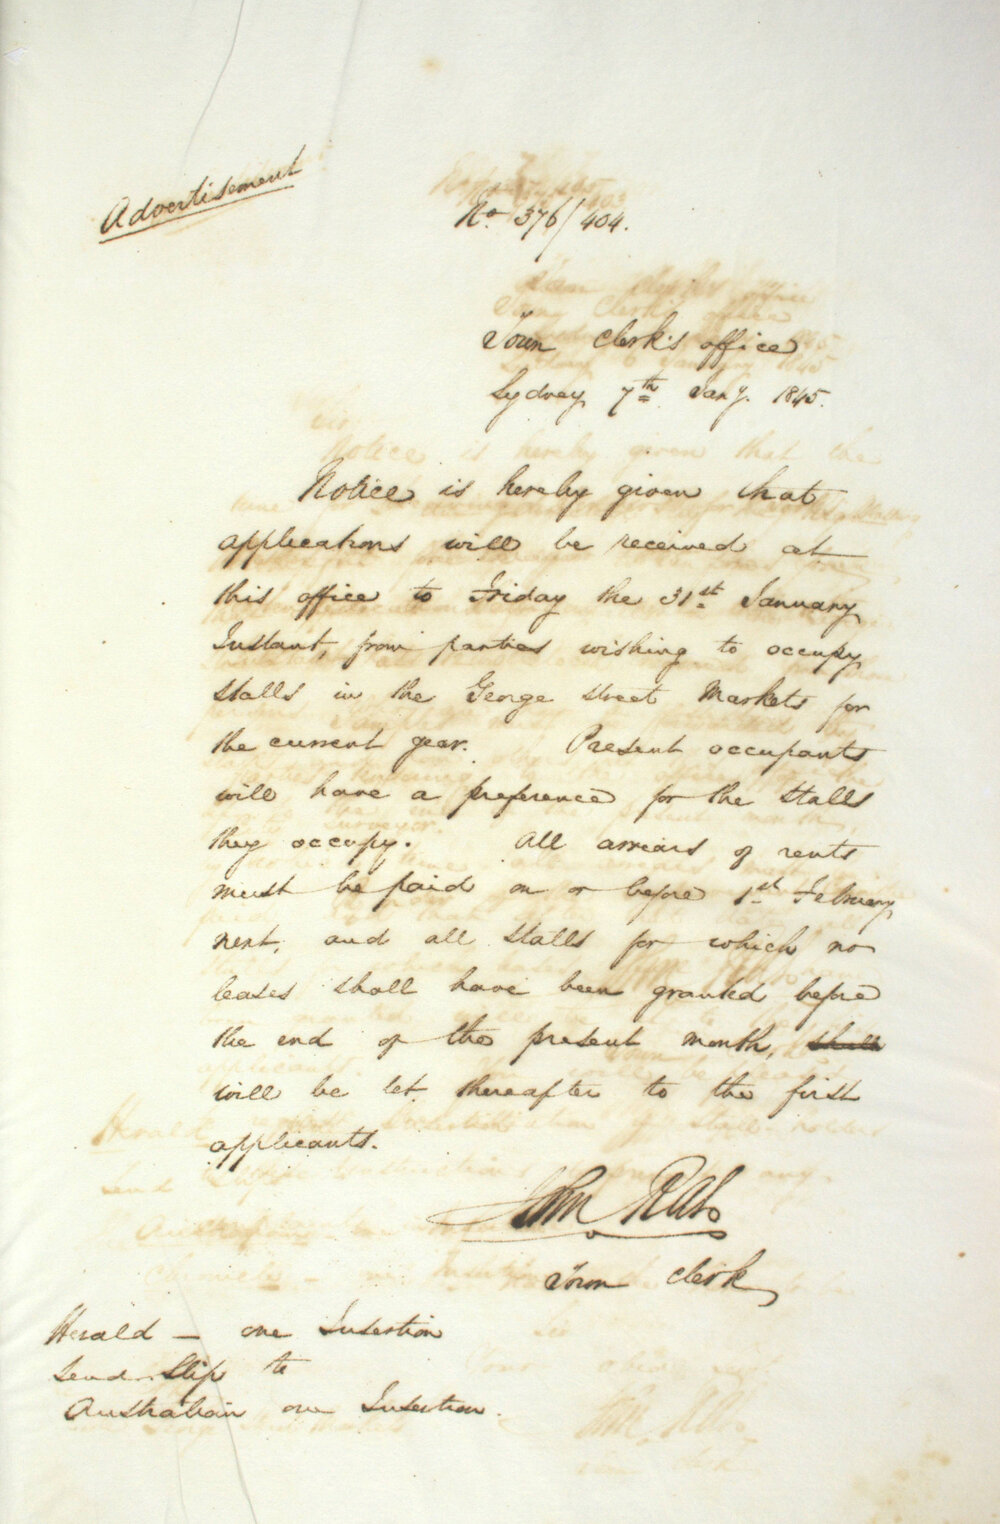 Advertisement
No. 376/404.
Town Clerk's office
Sydney 7th Jany. 1845.
Notice is hereby given that
applications will be received at
this office to Friday the 31st January
Instant, from parties wishing to occupy
Stalls in the George Street Markets for
the current year. Present occupants
will have a preference for the Stalls
they occupy. All arrears of rents
must be paid on or before 1st February
next, and all Stalls for which no
leases shall have been granted before
the end of the present month, shall
will be let thereafter to the first
applicants.
John Rae
Town Clerk
Herald – one Insertion
Send Slip to
Australian one Insertion.